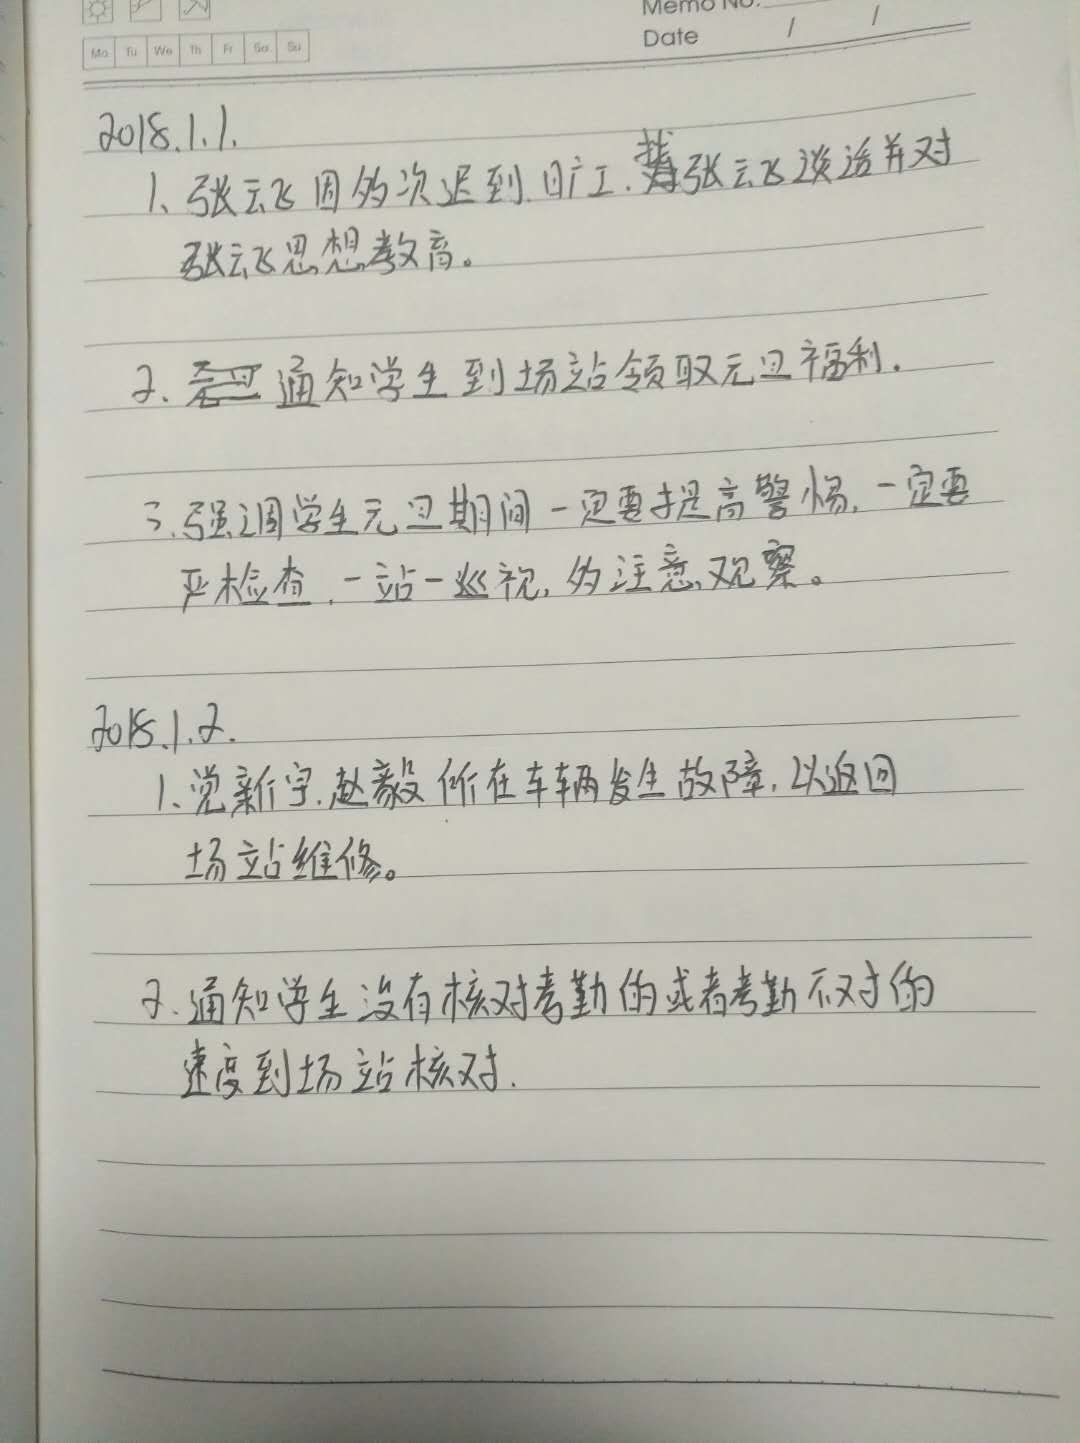 Memo No.
Mo Tu We Th Fr Sa Su
Date / /
2018.1.1.
1、张云飞因多次迟到、旷工、找张云飞谈话并对
张云飞思想教育。
2、通知学生到场站领取元旦福利.
3、强调学生元旦期间一定要提高警惕,一定要
严检查,一站一巡视,多注意观察。
2018.1.2.
1、党新宇、赵毅所在车辆发生故障,以返回
场站维修。
2、通知学生没有核对考勤的或者考勤不对的
速度到场站核对.